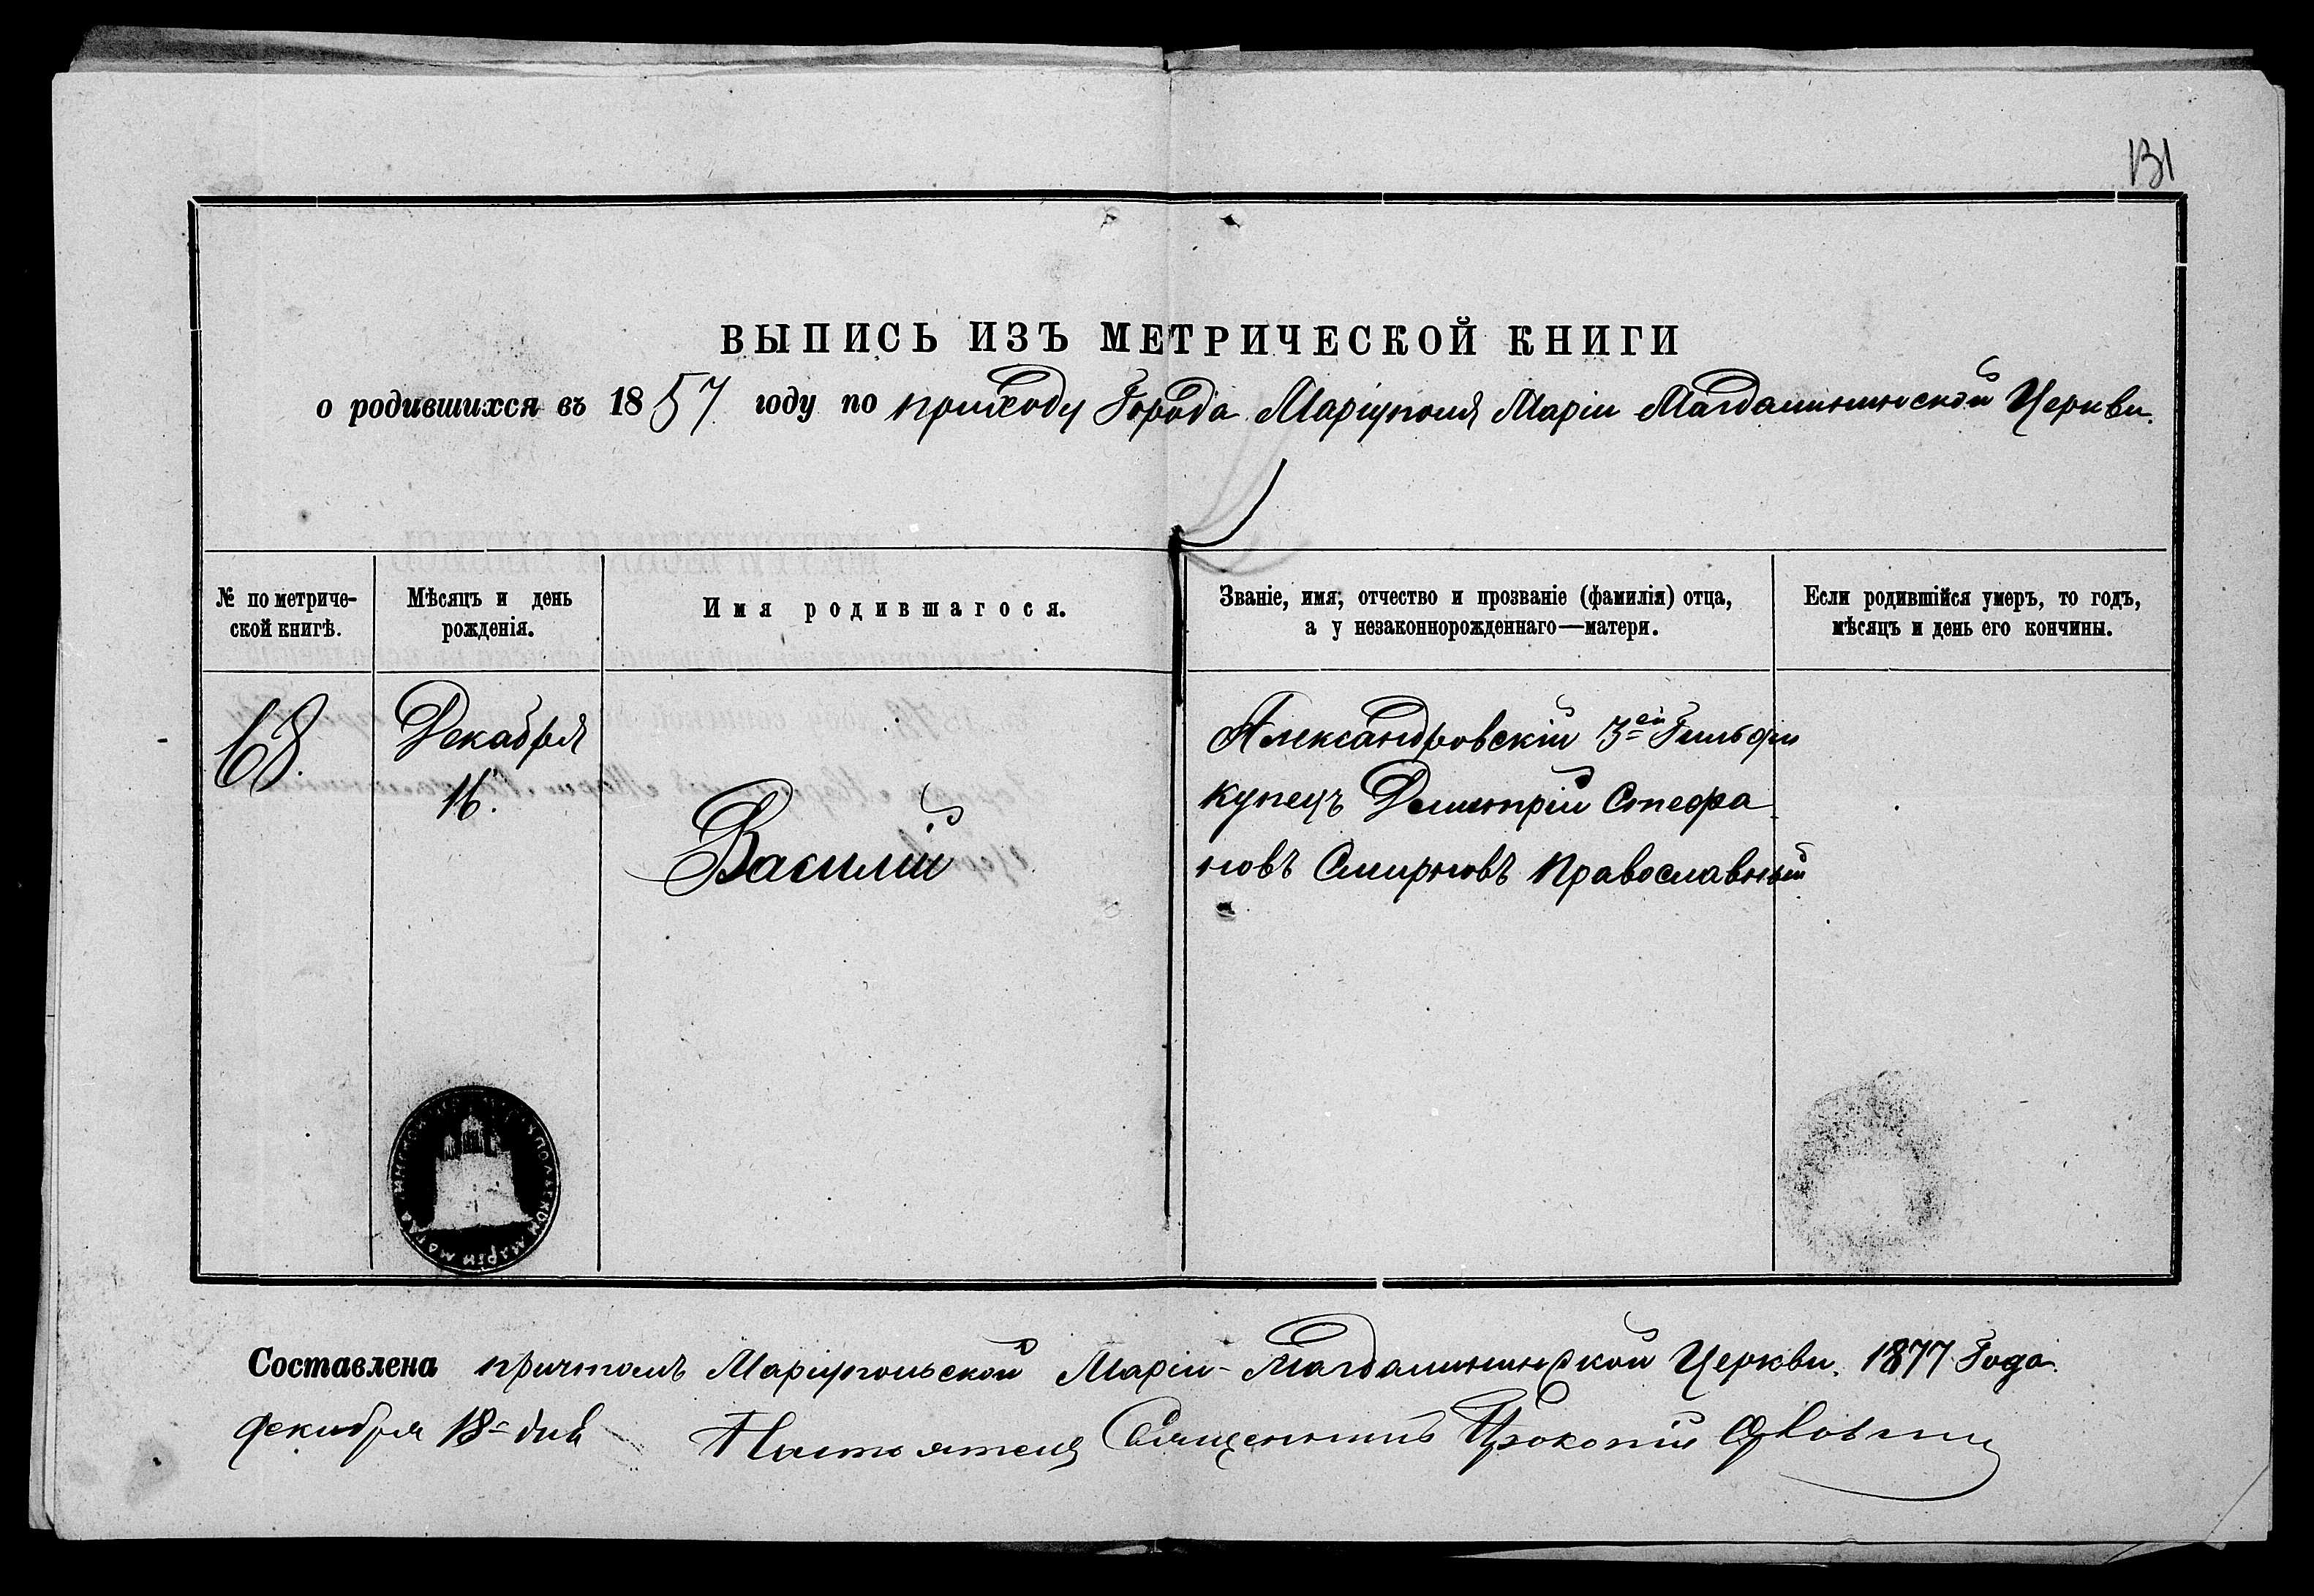 131
ВЫПИСЬ ИЗЪ МЕТРИЧЕСКОЙ КНИГИ
о родившихся въ 1857 году по приходу Города Маріуполя Маріи Магдалининской Церкви.
№ по метриче-
ской книгѣ.
Мѣсяцъ и день
рожденія.
Имя родившагося.
Званіе, имя, отчество и прозваніе (фамилія) отца,
а у незаконнорожденнаго—матери.
Если родившійся умеръ, то годъ,
мѣсяцъ и день его кончины.
68.
Декабря
16.
Василій
Александровскій 3ей Гильдіи
купецъ Димитрій Стефа
новъ Смирновъ Православный
Составлена причтомъ Маріупольской Маріи-Магдалининской Церкви. 1877 Года
декабря 18 дня Настоятель Священникъ Прокопій